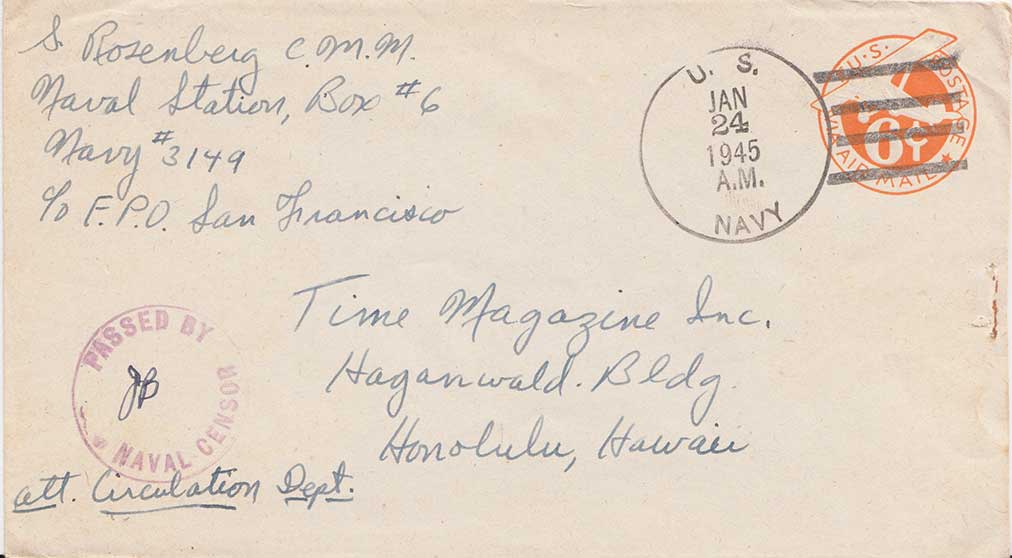 S. Rosenberg C.M.M.
Naval Station, Box #6
Navy #3149
c/o F.P.O. San Francisco
U. S.
JAN
24
1945
A.M.
NAVY
U.S. POSTAGE
6¢
VIA AIR MAIL
Time Magazine Inc.
Haganwald. Bldg.
Honolulu, Hawaii
PASSED BY
JB
NAVAL CENSOR
att. Circulation Dept.